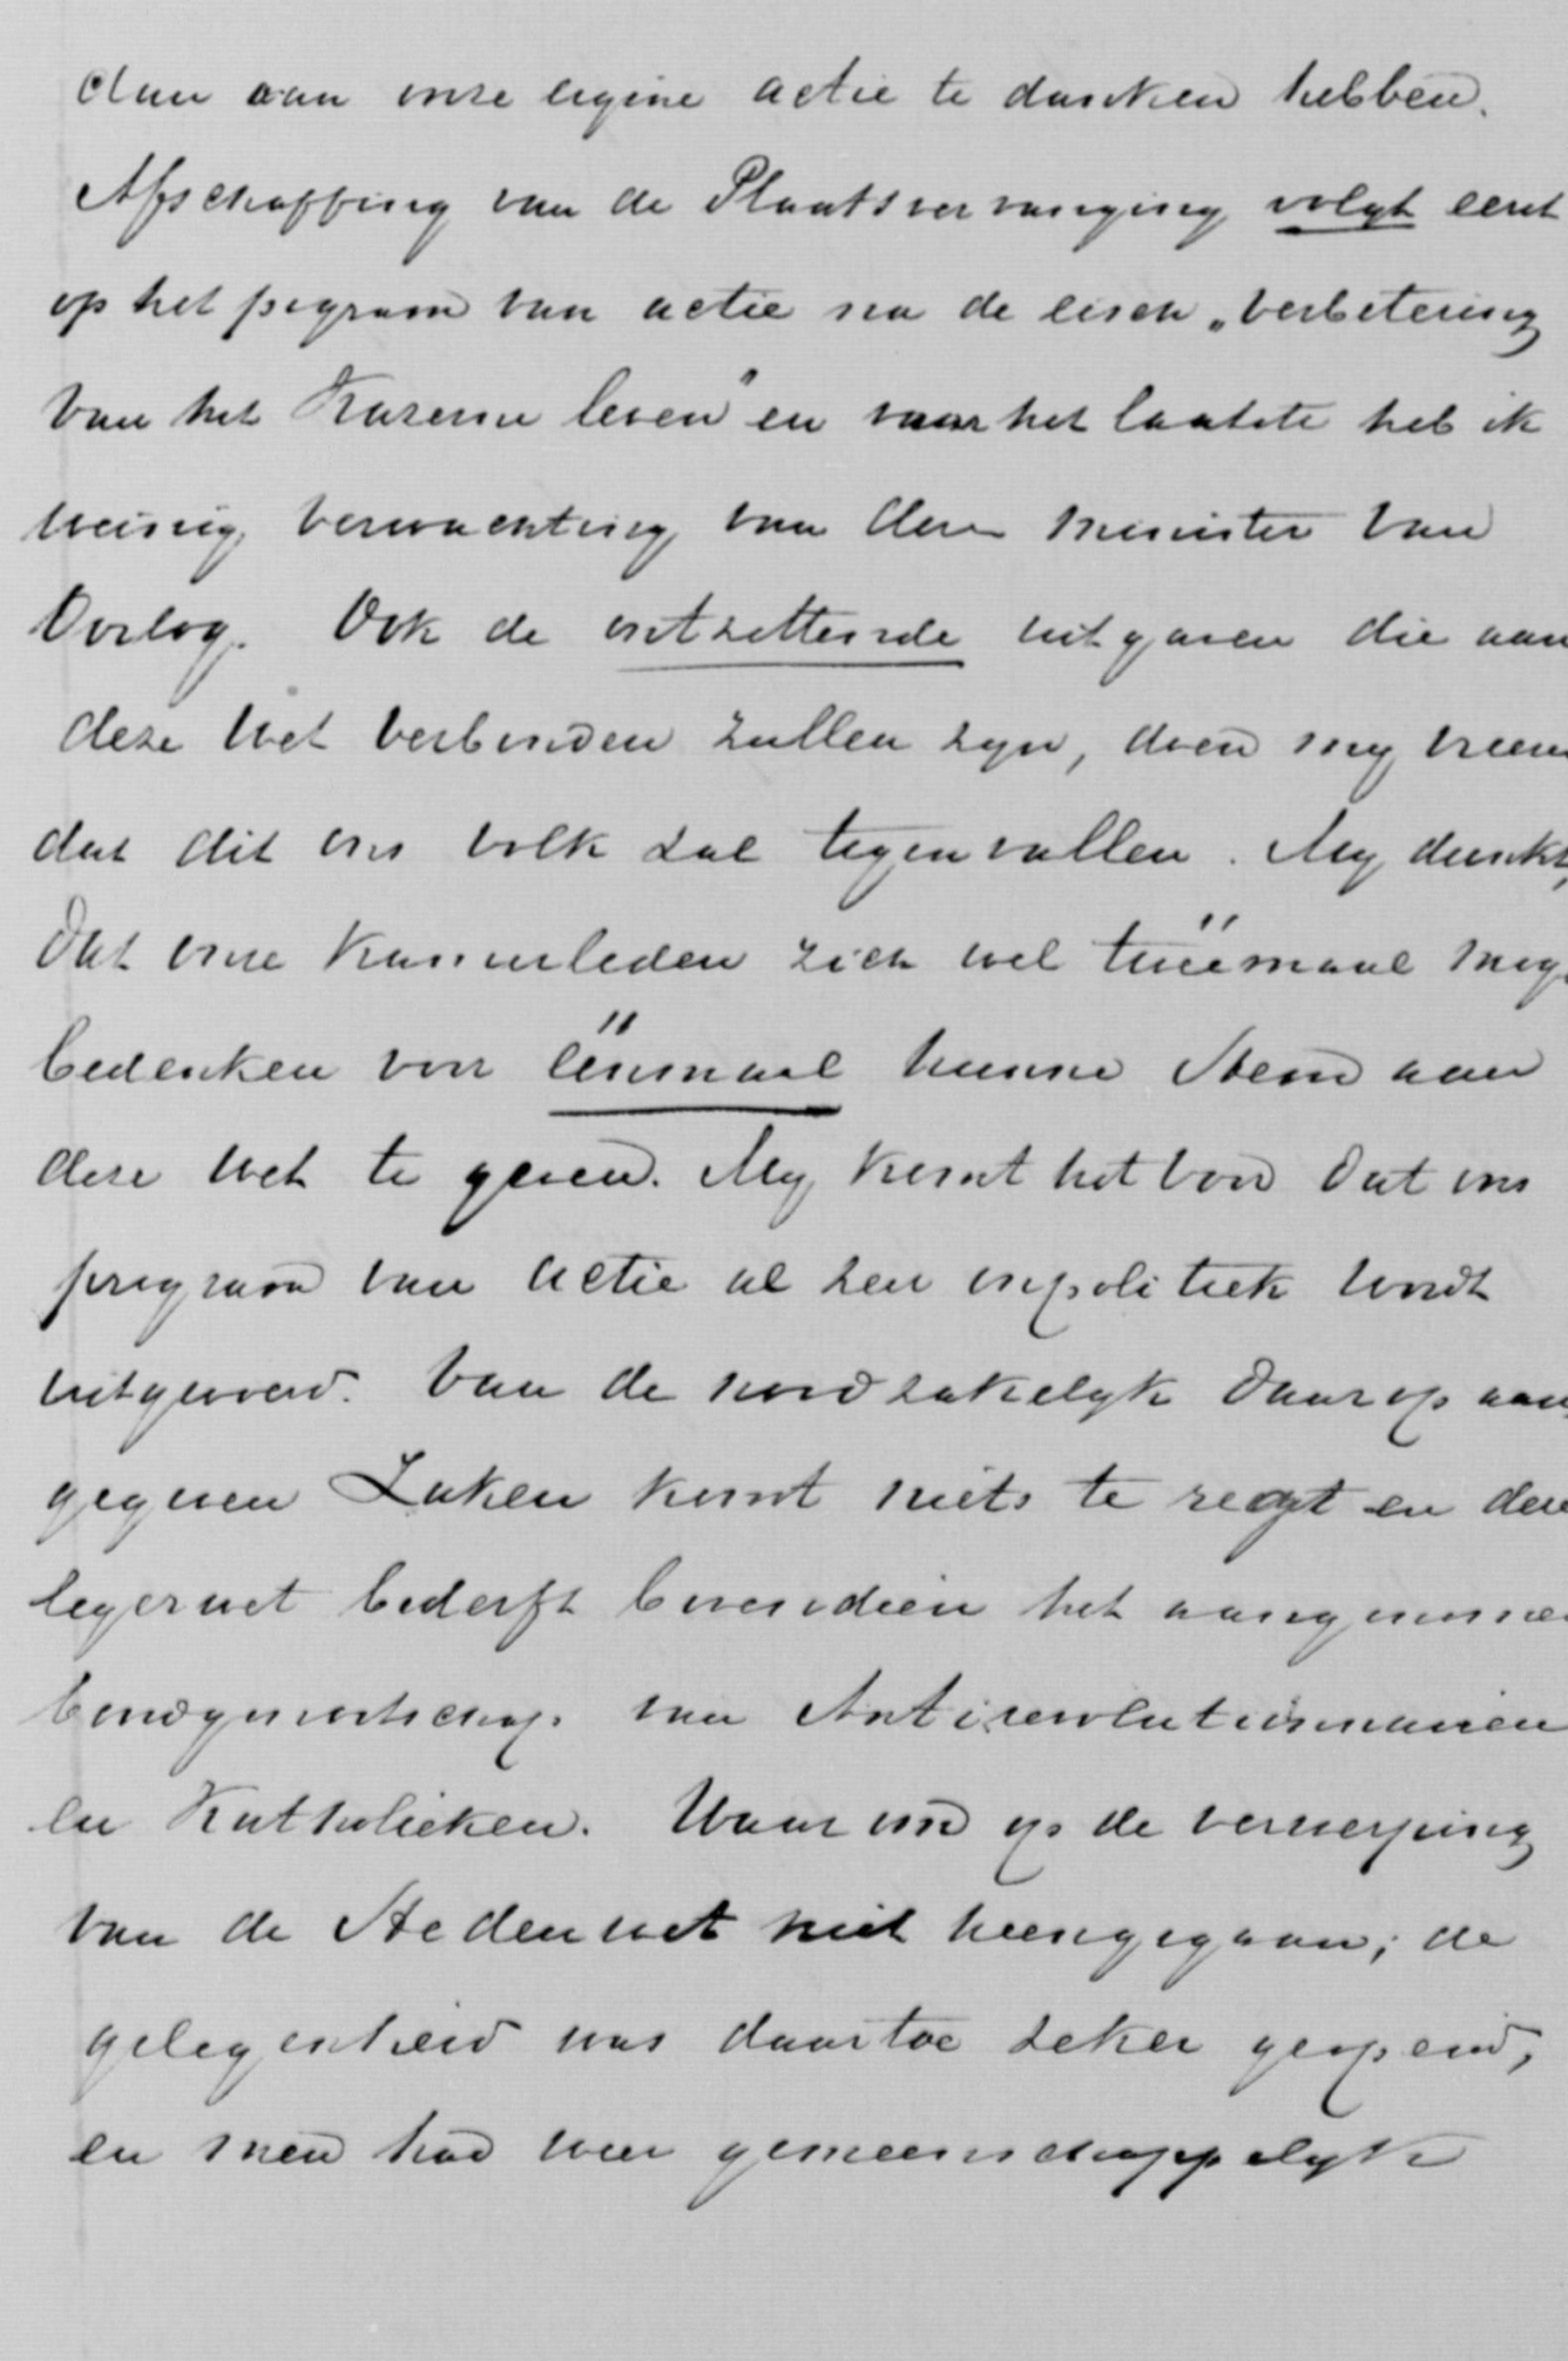 dan aan onze eigene actie te danken hebben.
Afschaffing van de Plaatsvervanging volgt eerst
op het pogram van actie na de eisch „verbetering
van het Kazerne leven" en voor het laatste heb ik
weinig verwachting van dezen Minister van
Oorlog. Ook de ontzettende uitgaven die aan
deze wet verbonden zullen zyn, doen my vreezen
dat dit ons volk zal tegenvallen. My dunkt,
dat onze Kamerleden zich wel tweemaal mogen
bedenken voor éénmaal hunne stem aan
deze wet te geven. My komt het voor dat ons
program van actie al zeer onpolitiek wordt
uitgevoerd. Van de noodzakelyk daarop aan
gegeven Zaken komt niets te regt en deze
legerwet bederft bovendien het aangename
bondgenootschap van Antirevolutionnairen
en Katholieken. Waarom op de verwerping
van de Stedenwet niet heengegaan; de
gelegenheid was daartoe zeker geopend,
en men had weer gemeenschappelyk